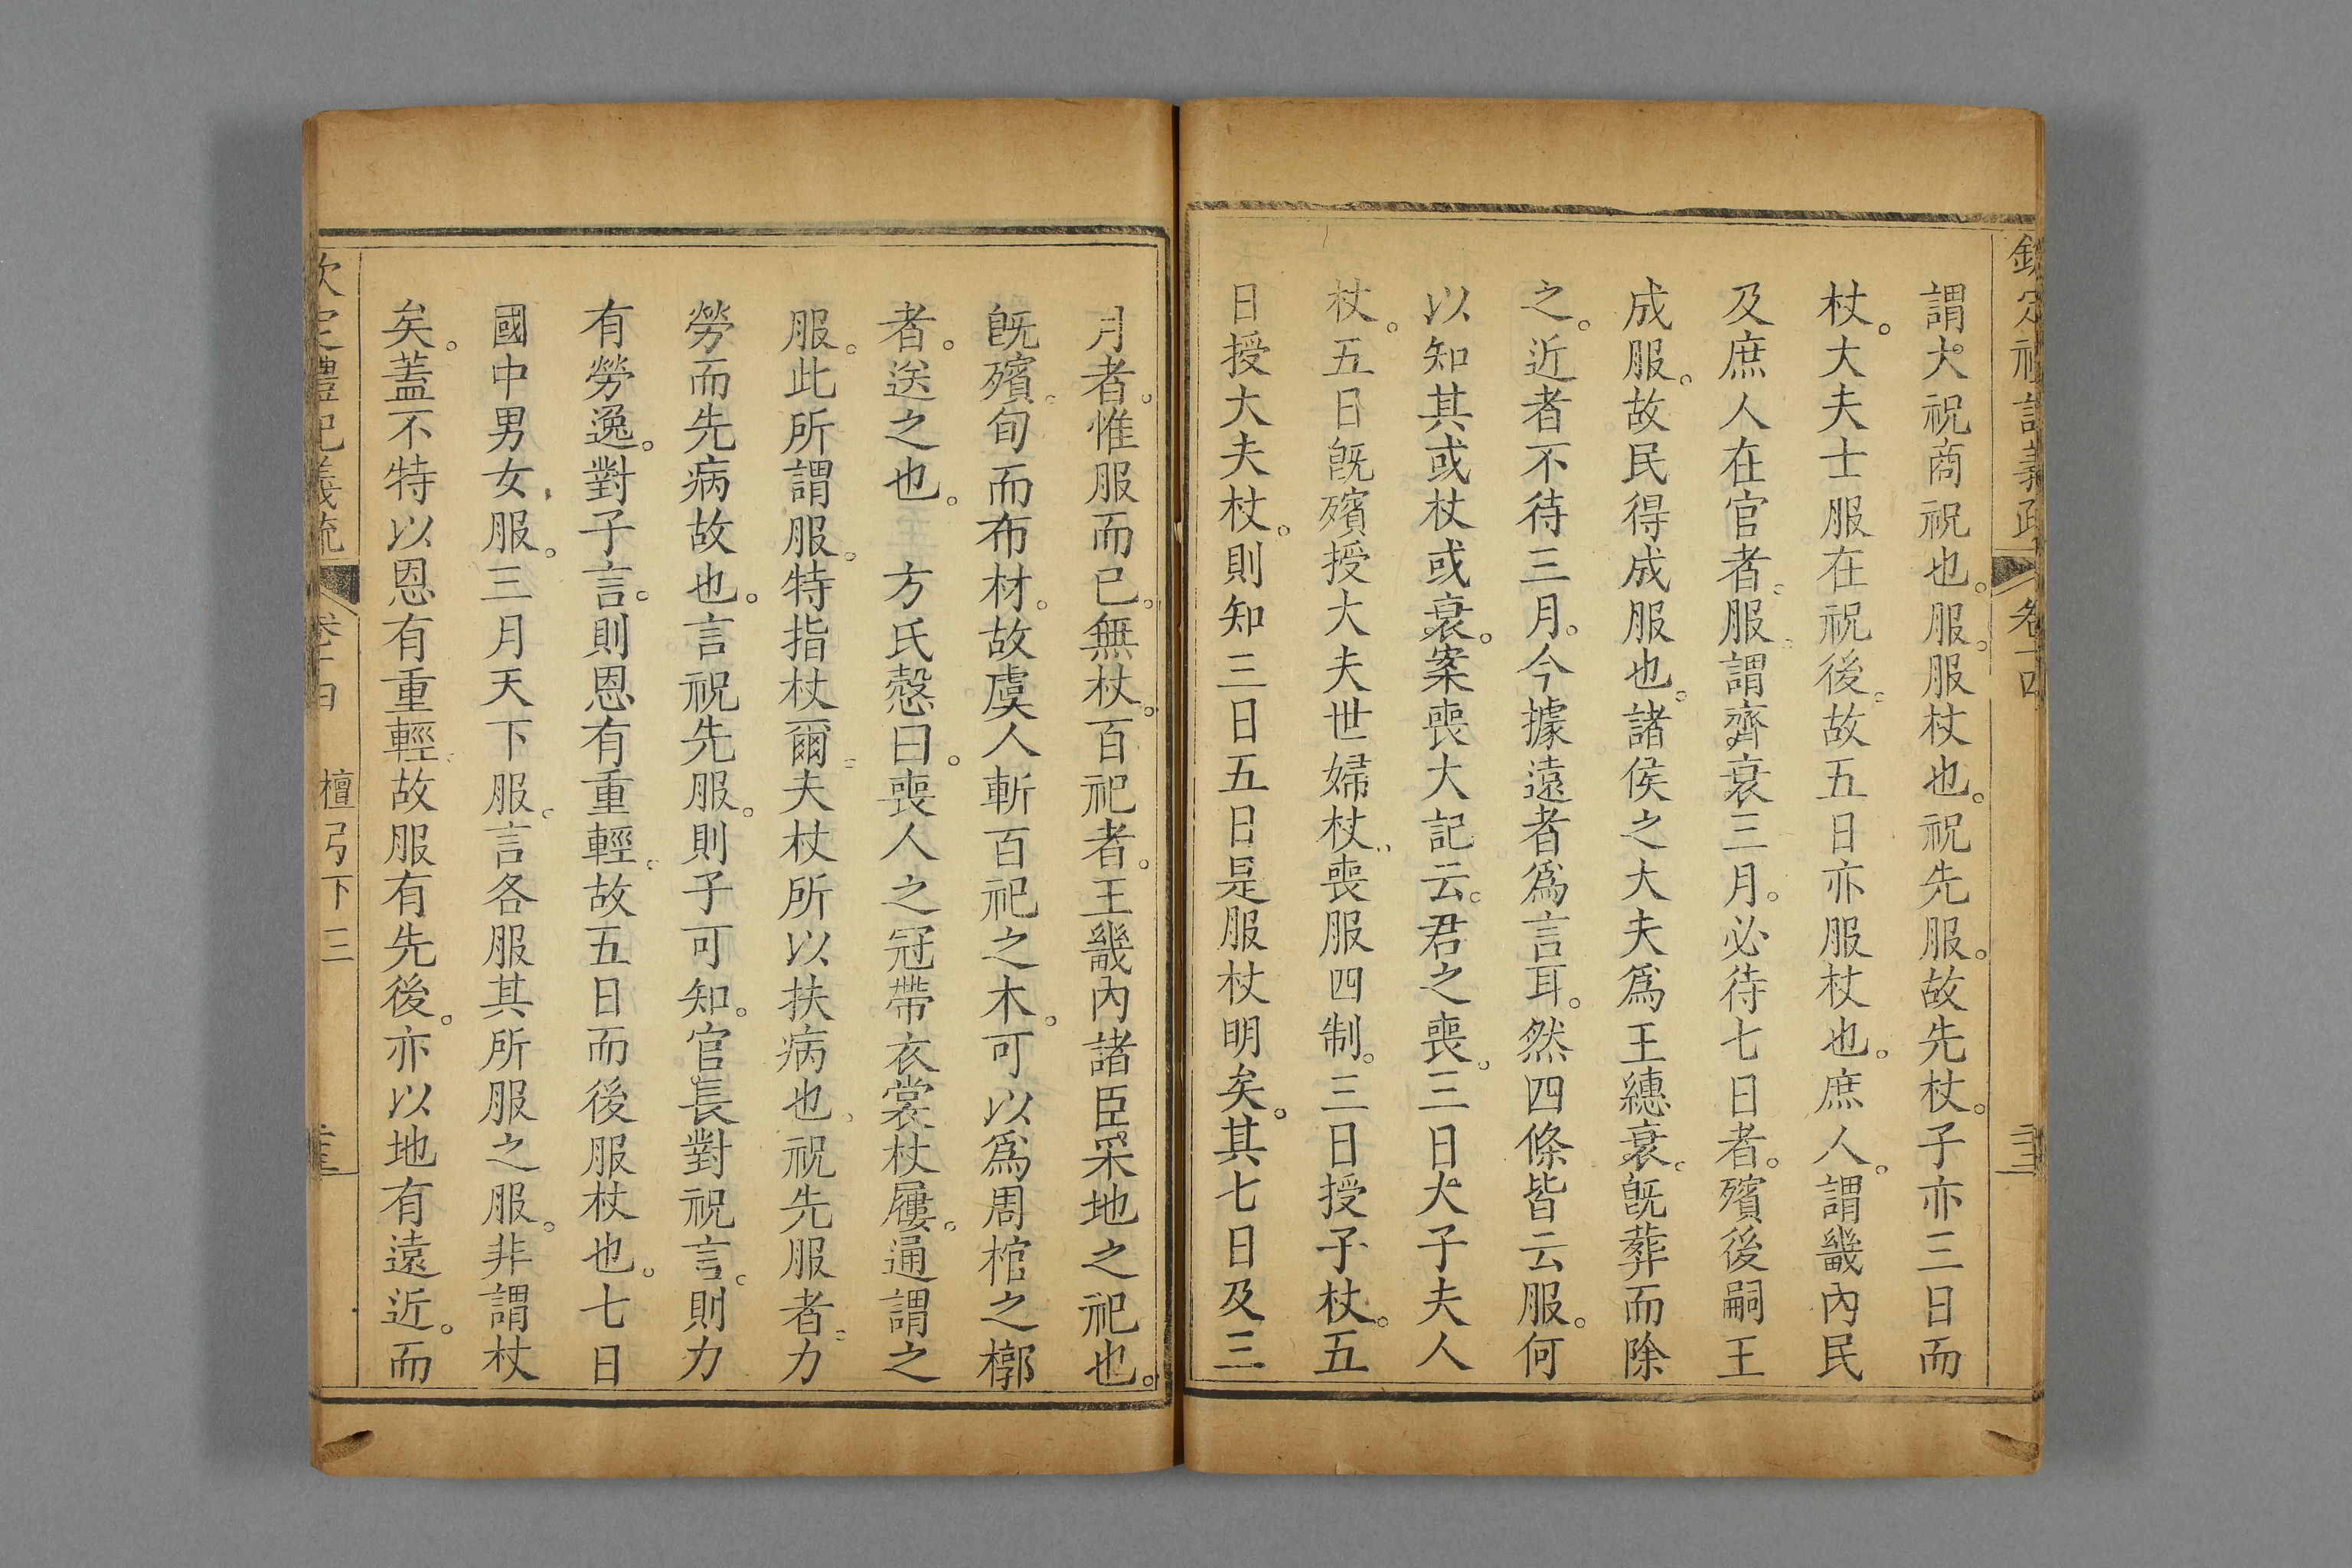 欽定禮記義疏 卷十四
謂大祝商祝也。服。服杖也。祝先服。故先杖。子亦三日而
杖。大夫士服在祝後。故五日亦服杖也。庶人。謂畿內民
及庶人在官者。服。謂齊衰三月。必待七日者。殯後嗣王
成服。故民得成服也。諸侯之大夫爲王繐衰。旣葬而除
之。近者不待三月。今據遠者爲言耳。然四條皆云服。何
以知其或杖或衰。案喪大記云。君之喪。三日大子夫人
杖。五日旣殯授大夫世婦杖。喪服四制。三日授子杖。五
日授大夫杖。則知三日五日是服杖明矣。其七日及三
月者。惟服而已。無杖。百祀者。王畿內諸臣采地之祀也。
旣殯。旬而布材。故虞人斬百祀之木。可以爲周棺之槨
者。送之也。方氏慤曰。喪人之冠帶衣裳杖屨。通謂之
服。此所謂服。特指杖爾。夫杖所以扶病也。祝先服者。力
勞而先病故也。言祝先服。則子可知。官長對祝言。則力
有勞逸。對子言。則恩有重輕。故五日而後服杖也。七日
國中男女服。三月天下服。言各服其所服之服。非謂杖
矣。蓋不特以恩有重輕。故服有先後。亦以地有遠近。而
欽定禮記義疏 卷十四 檀弓下三